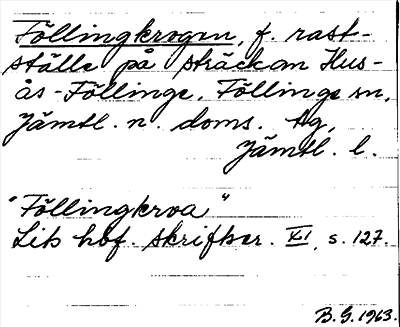 Föllingkrogen, f. rast-
ställe på sträckan Hus-
ås - Föllinge. Föllinge sn,
Jämtl. n. doms. tg,
Jämtl. l.
"Föllingkroa"
Lits hbf. skrifter. XI, s. 127.
B. G. 1963.